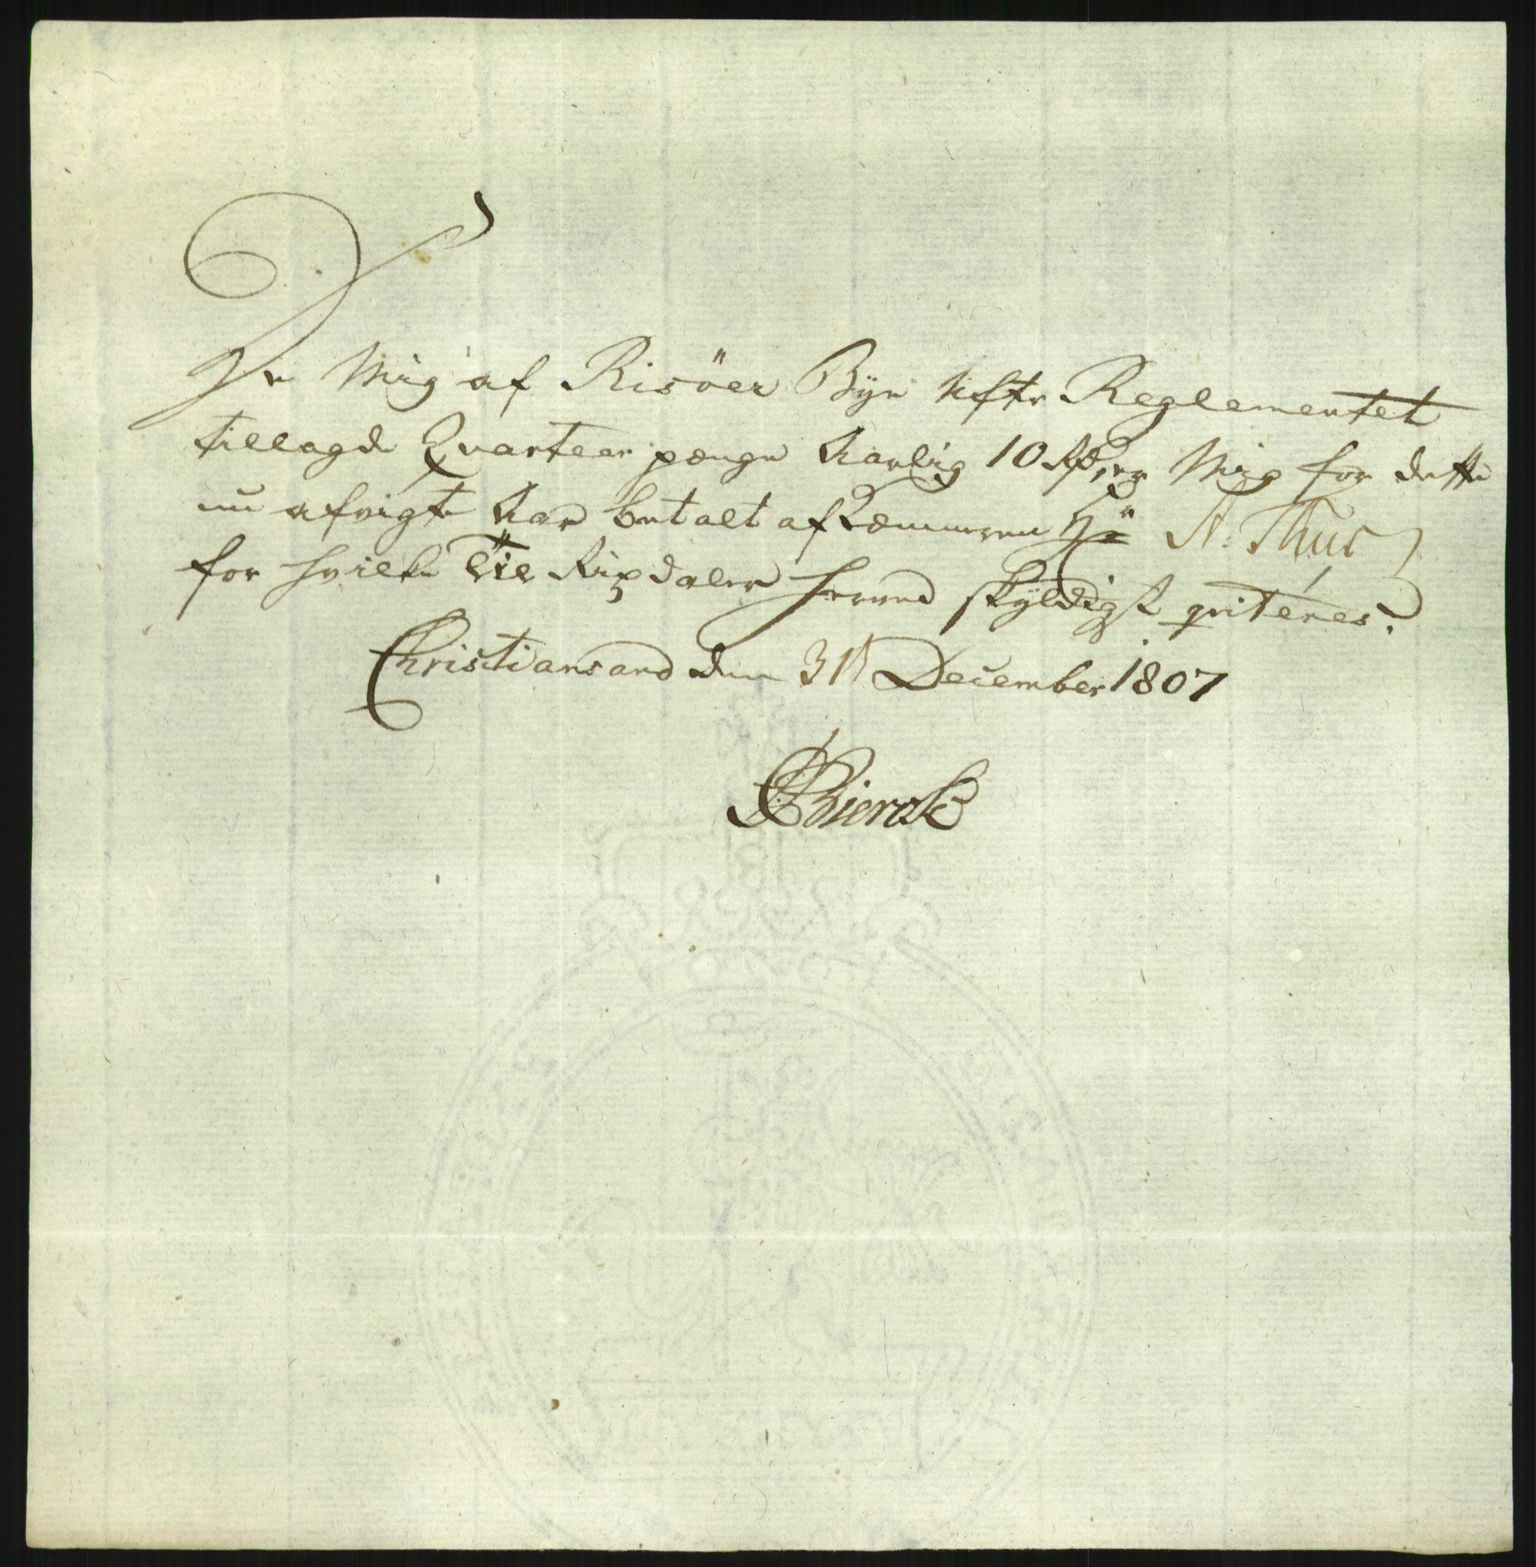 De Mig af Risöer Bÿe Efter Reglementet
tillagde Quarteer penge Aarlig 10 Rd, er Mig for dette
nu afvigte Aar betalt af Kæmneren Hr A. Thus
for hvilke Tïe Rixdaler herved skÿldigst qviteres.
Christiansand den 31t December 1807
Bierck